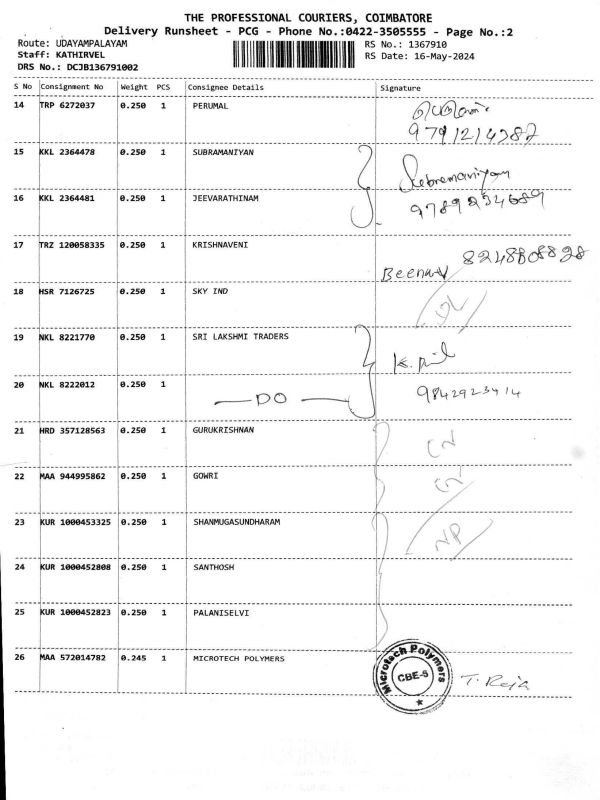 THE PROFESSIONAL COURIERS, COIMBATORE
Delivery Runsheet - PCG - Phone No.:0422-3505555 - Page No.:2
Route: UDAYAMPALAYAM RS No.: 1367910
Staff: KATHIRVEL RS Date: 16-May-2024
DRS No.: DCJB136791002
S No Consignment No Weight PCS Consignee Details Signature
14 TRP 6272037 0.250 1 PERUMAL
15 KKL 2364478 0.250 1 SUBRAMANIYAN Subremaniyam
16 KKL 2364481 0.250 1 JEEVARATHINAM
17 TRZ 120058335 0.250 1 KRISHNAVENI
18 HSR 7126725 0.250 1 SKY IND
19 NKL 8221770 0.250 1 SRI LAKSHMI TRADERS
20 NKL 8222012 0.250 1 — DO — 9842923414
21 HRD 357128563 0.250 1 GURUKRISHNAN
22 MAA 944995862 0.250 1 GOWRI
23 KUR 1000453325 0.250 1 SHANMUGASUNDHARAM NP
24 KUR 1000452808 0.250 1 SANTHOSH
25 KUR 1000452823 0.250 1 PALANISELVI
26 MAA 572014782 0.245 1 MICROTECH POLYMERS Microtech Polymers CBE-5 T. Raja